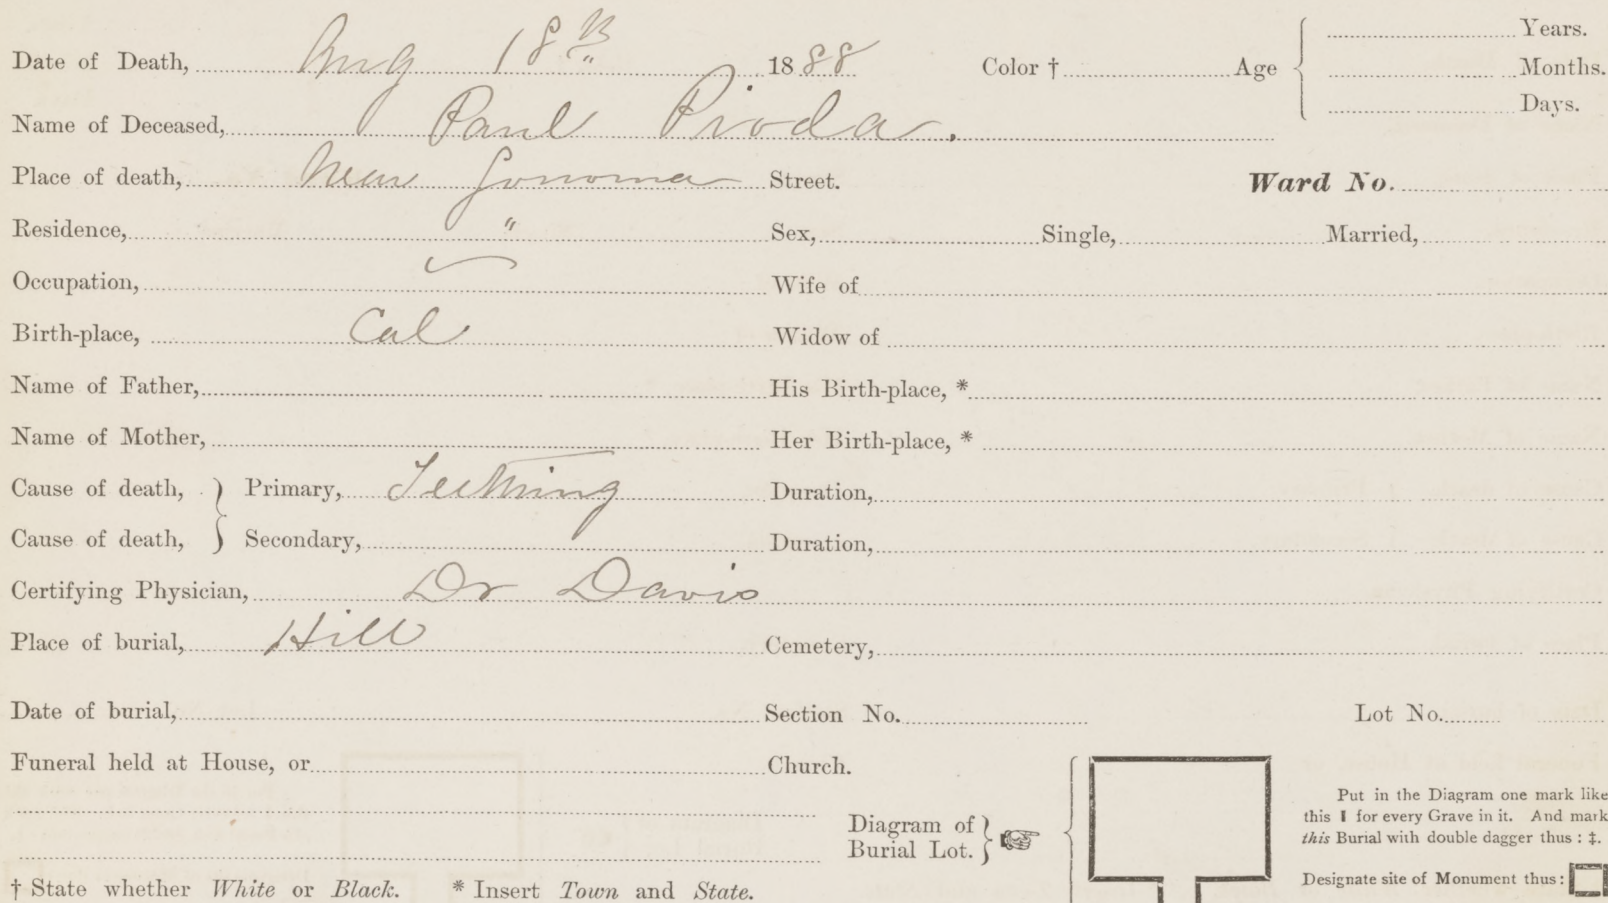 Date of Death, Aug 18th 1888 Color † Age Years.
Months.
Days.
Name of Deceased, Paul Pioda.
Place of death, Near Sonoma Street. Ward No.
Residence, " Sex, Single, Married,
Occupation, Wife of
Birth-place, Cal Widow of
Name of Father, His Birth-place, *
Name of Mother, Her Birth-place, *
Cause of death, } Primary, Teething Duration,
Cause of death, } Secondary, Duration,
Certifying Physician, Dr Davis
Place of burial, Hill Cemetery,
Date of burial, Section No. Lot No.
Funeral held at House, or Church.
Diagram of
Burial Lot.
Put in the Diagram one mark like
this ▮ for every Grave in it. And mark
this Burial with double dagger thus : ‡.
Designate site of Monument thus :
† State whether White or Black. * Insert Town and State.